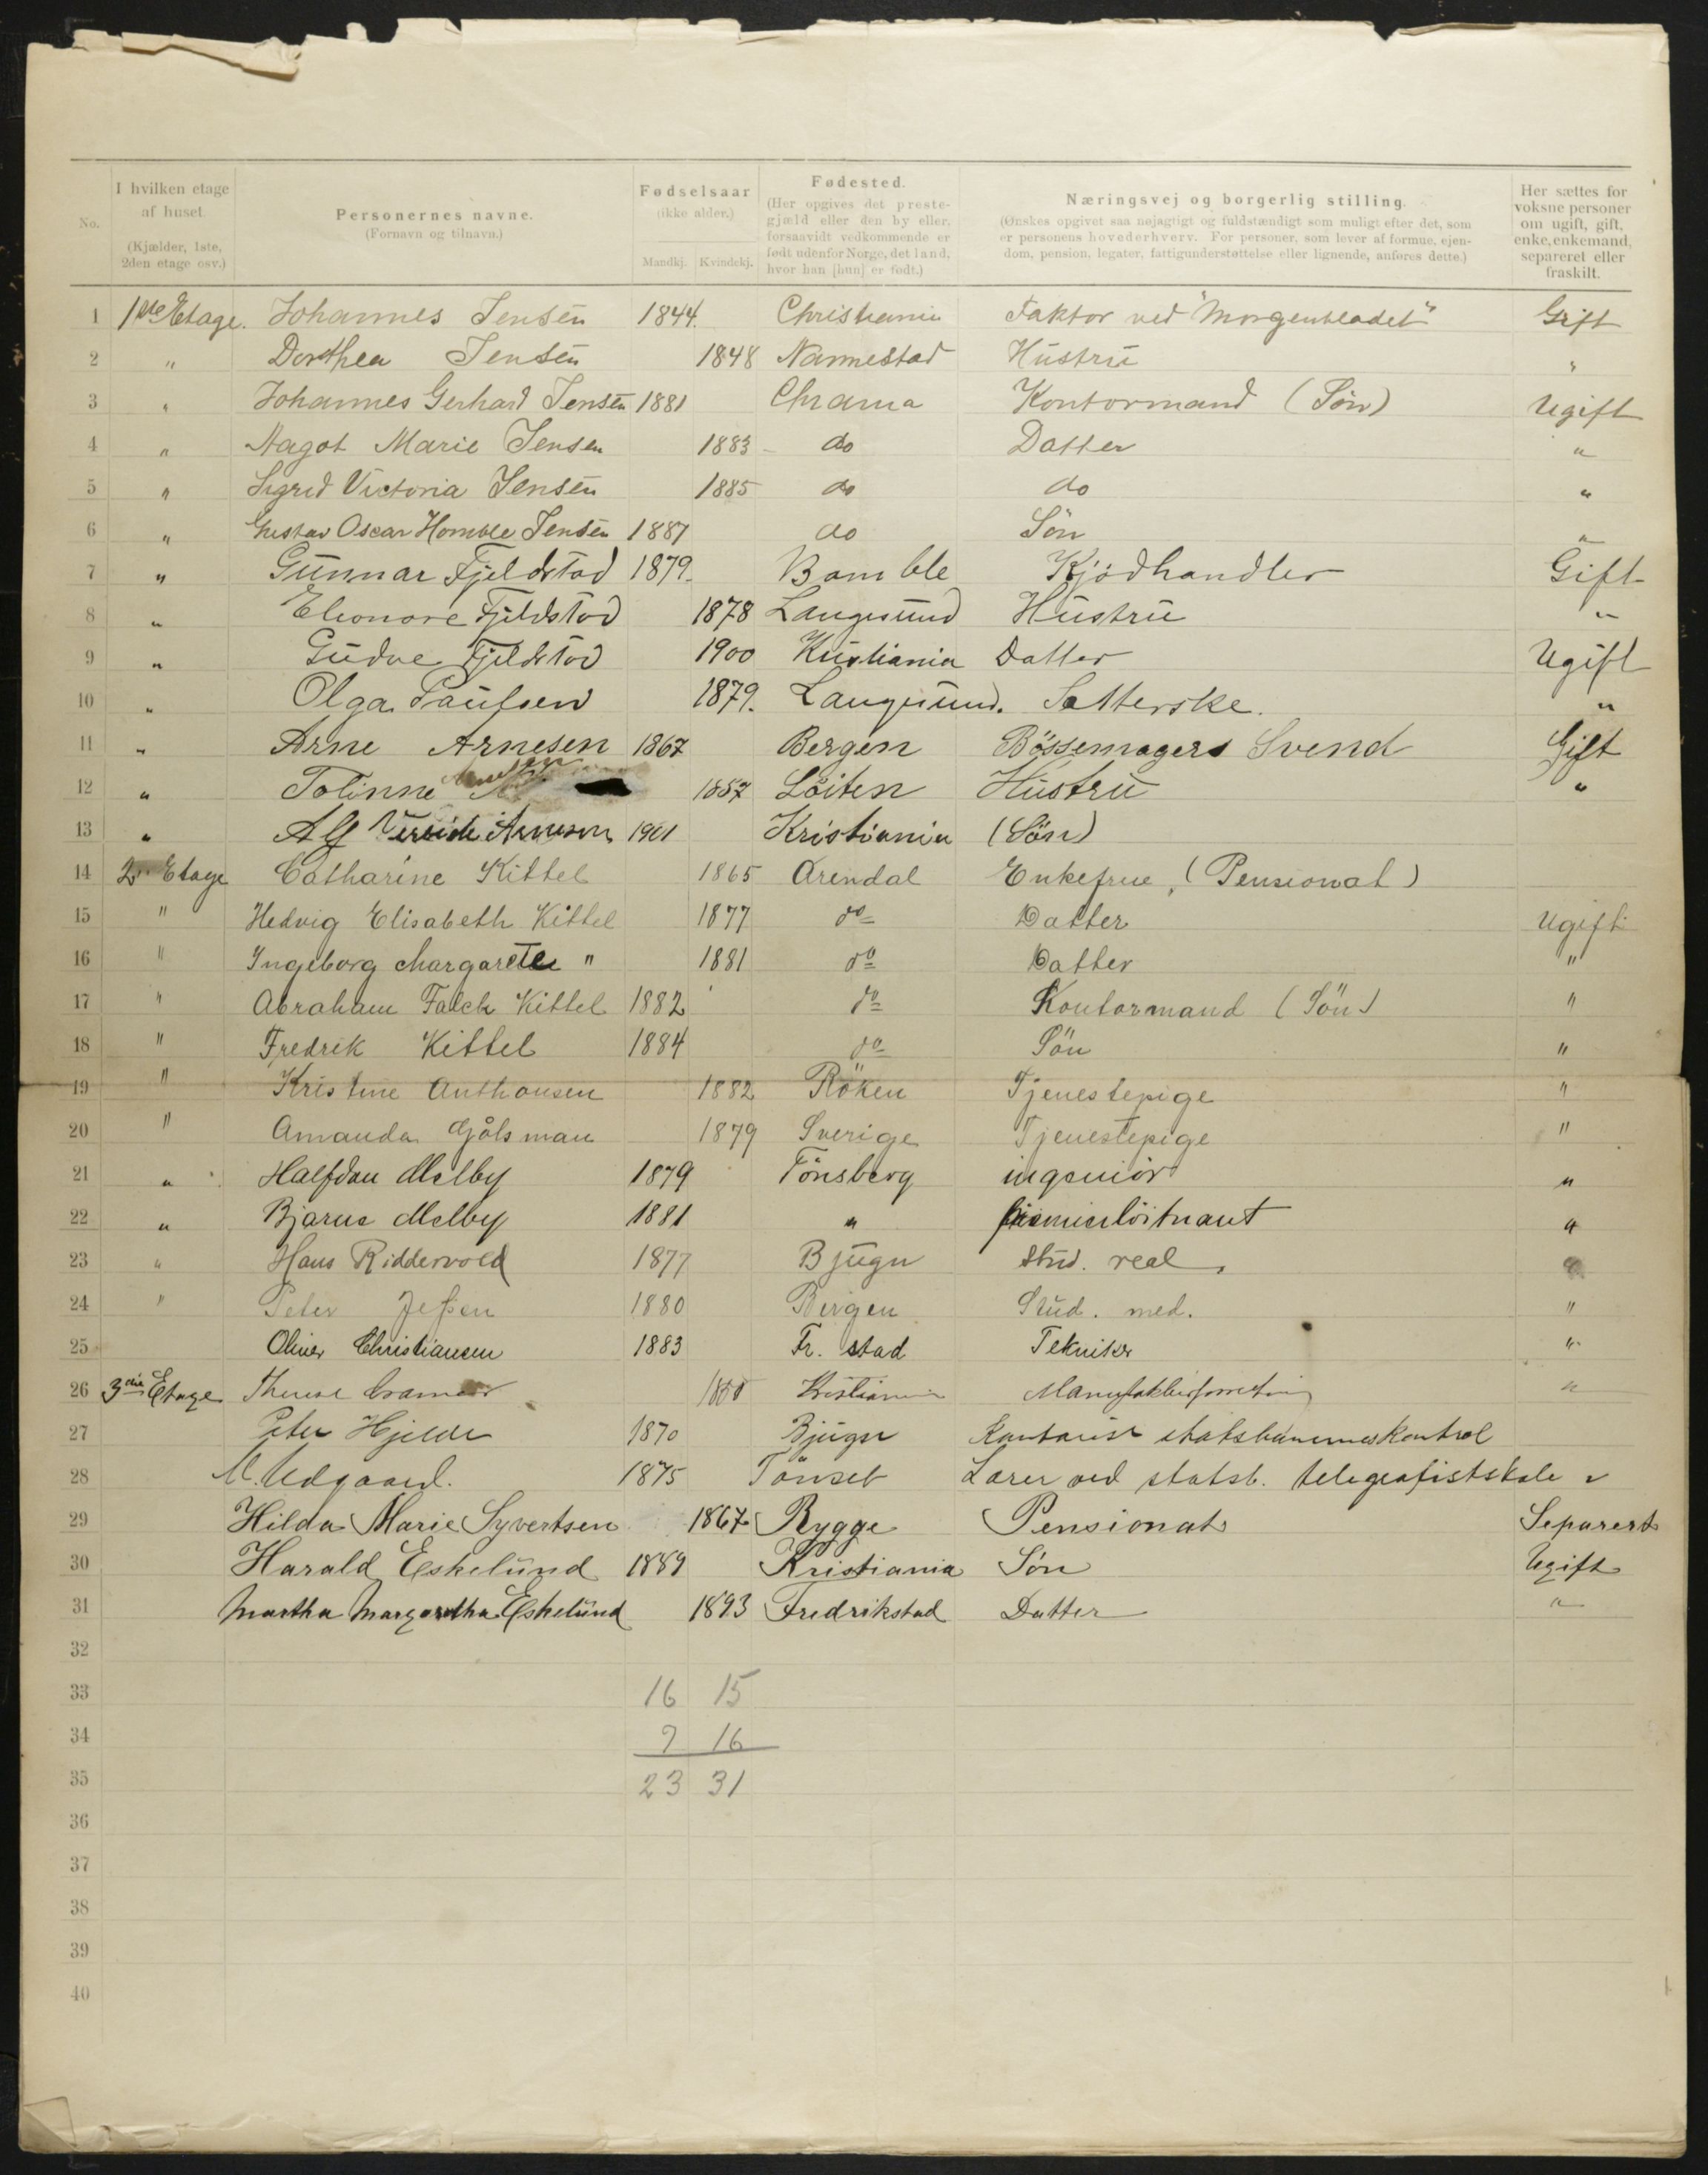 No.
I hvilken etage af huset. (Kjælder, 1ste, 2den etage osv.)
Personernes navne. (Fornavn og tilnavn.)
Fødselsaar (ikke alder.) Mandkj. Kvindekj.
Fødested. (Her opgives det prestegjæld eller den by eller, forsaavidt vedkommende er født udenfor Norge, det land, hvor han [hun] er født.)
Næringsvej og borgerlig stilling. (Ønskes opgivet saa nøjagtigt og fuldstændigt som muligt efter det, som er personens hovederhverv. For personer, som lever af formue, ejendom, pension, legater, fattigunderstøttelse eller lignende, anføres dette.)
Her sættes for voksne personer om ugift, gift, enke, enkemand, separeret eller fraskilt.
1 1ste Etage. Johannes Jensen 1844. Christiania Faktor ved "Morgenbladet" Gift
2 " Dorthea Jensen 1848 Nannestad Hustru "
3 " Johannes Gerhard Jensen 1881 Chrania Kontormand (Søn) Ugift
4 " Nagot Marie Jensen 1883 do Datter "
5 " Sigrid Victoria Jensen 1885 do do "
6 " Gustav Oscar Homble Jensen 1887 do Sön "
7 " Gunnar Fjeldstad 1879. Bamble Kjödhandler Gift
8 " Eleonore Fjeldstad 1878 Langesund Hustru "
9 " Fjeldstad 1900 Kristiania Datter Ugift
10 " Olga Paulsen 1879. Langesund. "
11 " Arne Arnesen 1867 Bergen Bössemagers Svend Gift
12 " Tolinne Arnesen 1857 Löiten Hustru "
13 " Alf Arnesen 1901 Kristiania (Sön)
14 2. Etage Catharine Kittel 1865 Arendal Enkefrue, (Pensionat)
15 " Hedvig Elisabeth Kittel 1877 do Datter Ugift
16 " Ingeborg Margarete " 1881 do Datter "
17 " Abraham Falck Kittel 1882 do Kontormand (Sön) "
18 " Fredrik Kittel 1884 do Sön "
19 " Kristine Anthonsen 1882 Röken Tjenestepige "
20 " Amanda Gålsman 1879 Sverige Tjenestepige "
21 " Halfdan Melby 1879 Tönsberg ingeniör "
22 " Bjarne Melby 1881 " "
23 " Hans Riddervold 1877 Bjugn Stud. real. "
24 " Peter Jessen 1880 Bergen Stud. med. "
25 Oliver Christiansen 1883 Fr. stad Tekniker "
26 3die Etage Cramer Kristiania "
27 Peter Hjelde 1870 Bjugn Kontorist statsbanernes Kontrol
28 M. Udgaard. 1875 Tönset Lærer ved statsb. telegrafistskole "
29 Hilda Marie Syvertsen 1867 Rygge Pensionat Separert
30 Harald Eskelund 1889 Kristiania Sön Ugift
31 Martha Margaretha Eskelund 1893 Fredrikstad Datter "
32
33 16 15
34 7 16
35 23 31
36
37
38
39
40